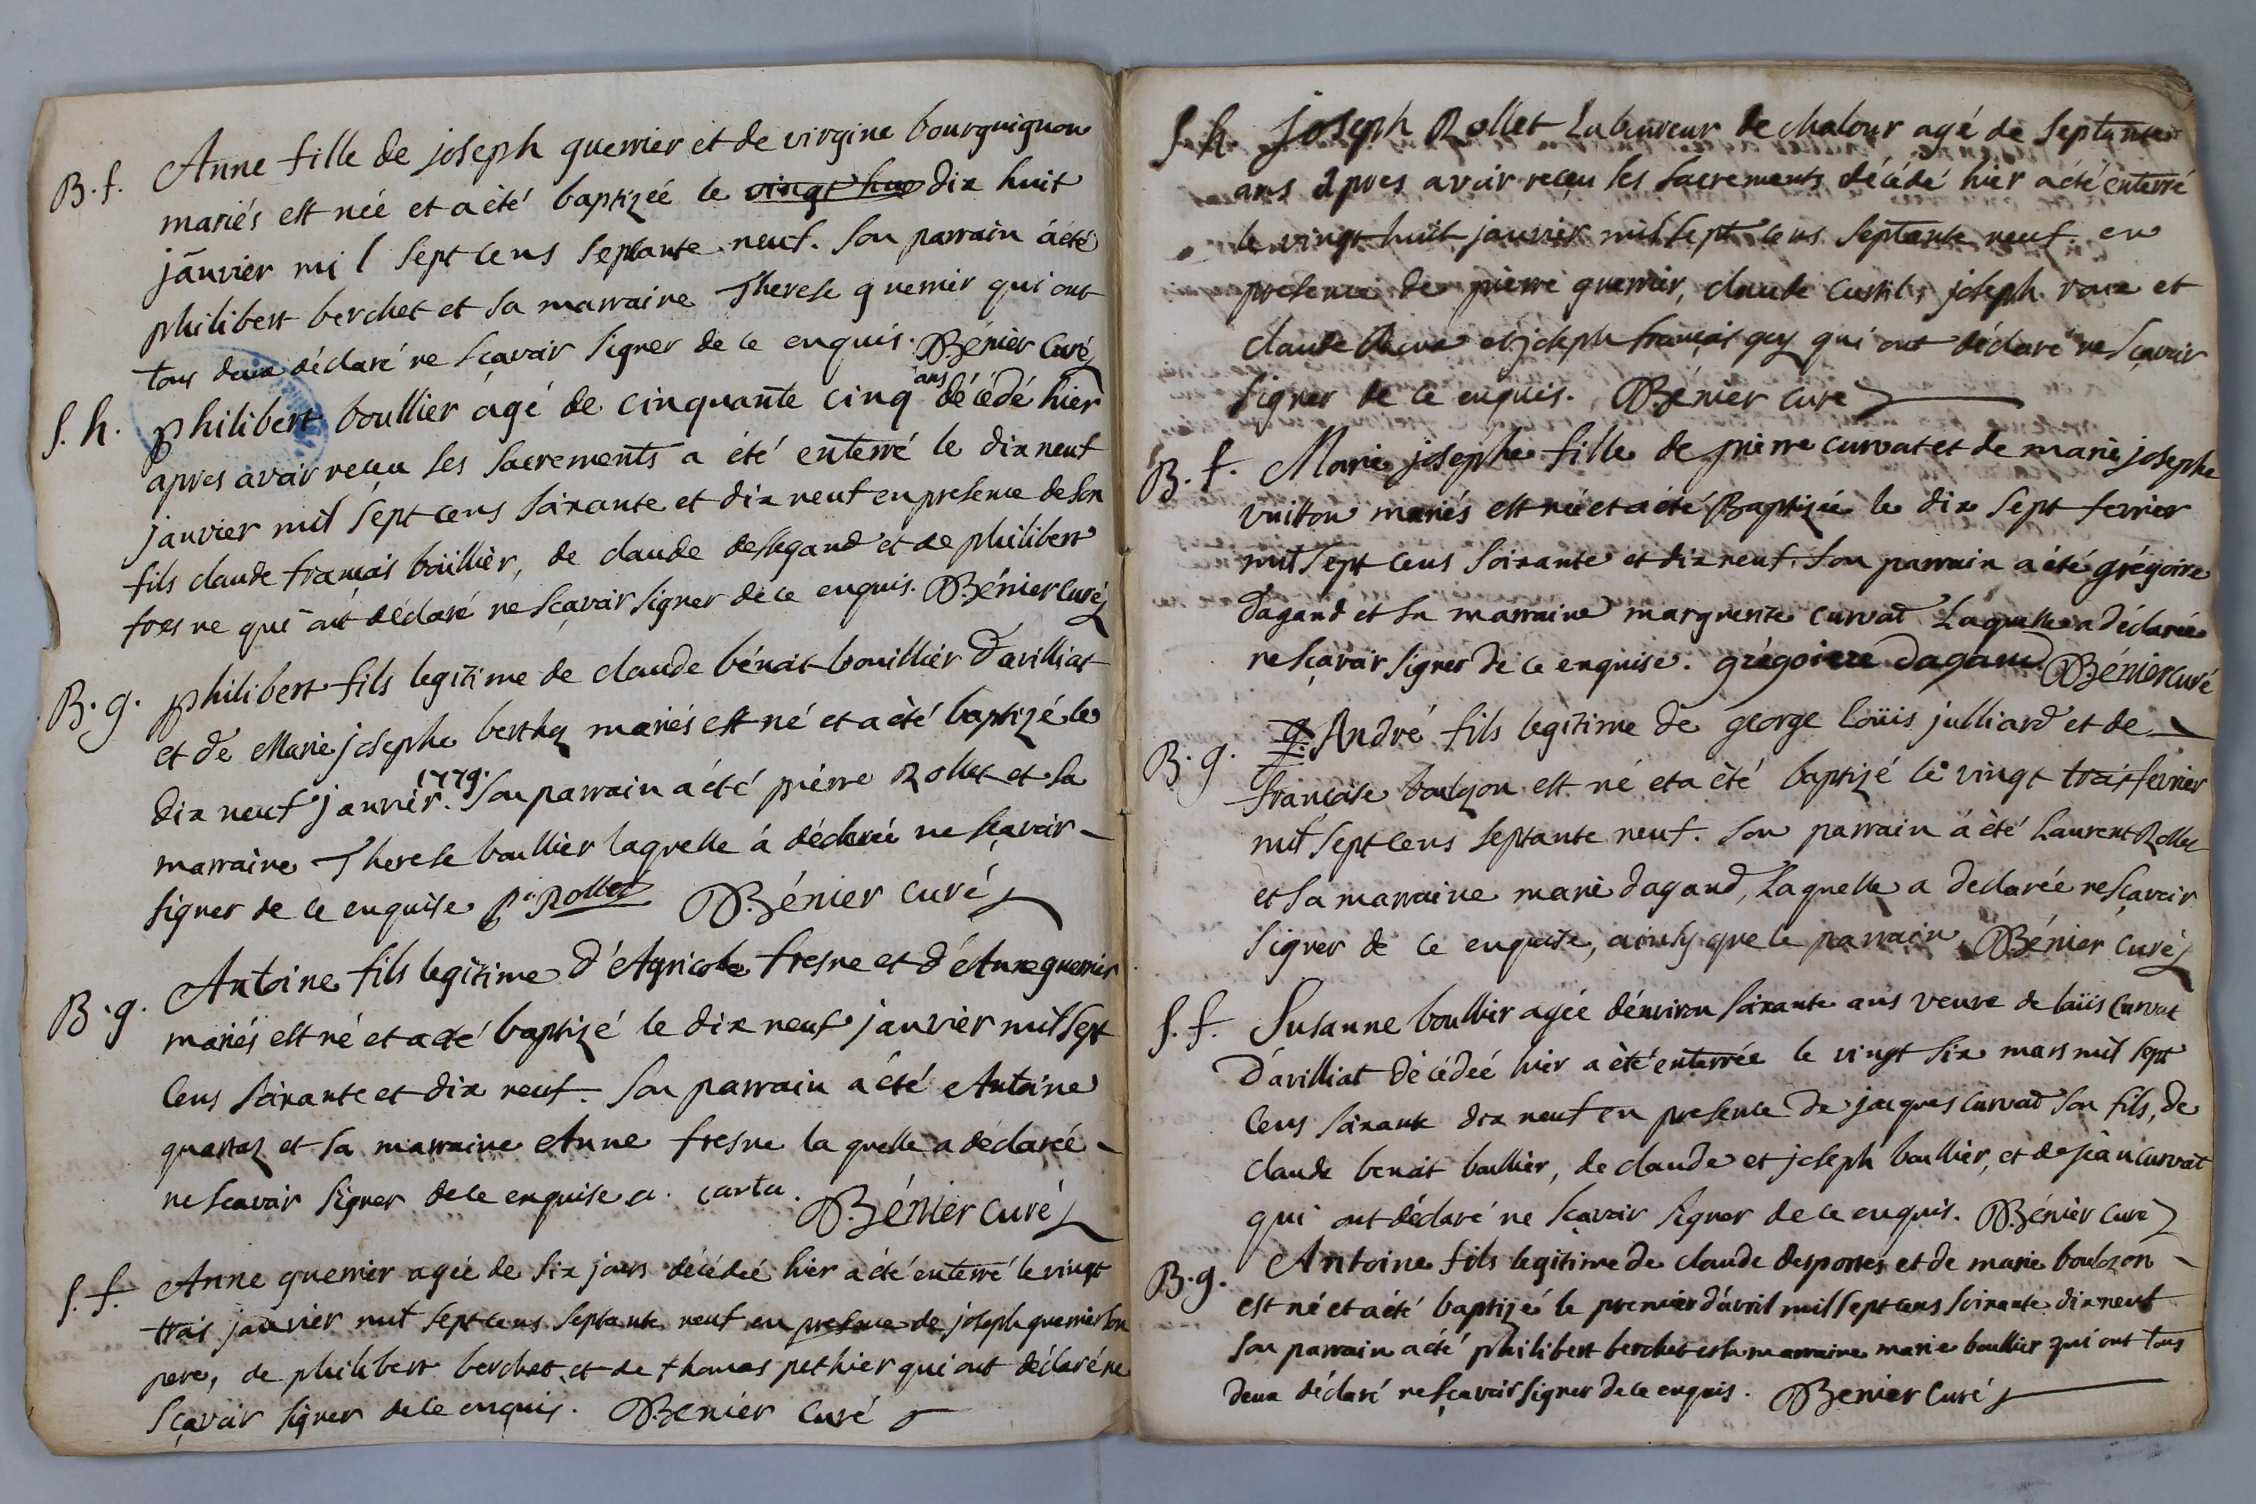 B. f. Anne fille de joseph guerrier et de virgine bourguignon
mariés est née et a été baptizée le vingt hui dix huit
janvier mil sept cens septante neuf. son parrain a été
philibert berchet et sa marraine Therese guerrier qui ont
tous deux déclaré ne sçavoir signer de ce enquis. Bénier Curé
S. h. philibert boullier agé de cinquante cinq ans décédé hier
apres avoir reçeu les sacrements a été enterré le dix neuf
janvier mil sept cens soixante et dix neuf en presence de son
fils claude francois boüillier, de claude delegand et de philibert
fresne qui ont déclaré ne sçavoir signer de ce enquis. Bénier Curé
B. g. philibert fils legitime de claude bénoit bouillier d'avilliat
et de Marie josephe berthez mariés est né et a été baptizé le
dix neuf janvier. 1779. son parrain a été pierre Rollet et sa
marraine Therese boullier laquelle á déclarée ne sçavoir
signer de ce enquise p. Rollet Bénier curé
B. g. Antoine fils legitime d'Agricole fresne et d'Anne guerrier
mariés est né et a été baptizé le dix neuf janvier mil sept
cens soixante et dix neuf. son parrain a été Antoine
quartaz et sa marraine Anne fresne la quelle a déclarée
ne scavoir signer de ce enquise a. carta. Bénier curé
S. f. Anne guerrier agée de six jours décédée hier a été enterré le vingt
trois janvier mil sept cens septante neuf en presence de joseph guerrier son
pere, de philibert berchet, et de thomas pethier qui ont déclaré ne
sçavoir signer de ce enquis. Benier Curé
S. h. joseph Rollet Laboureur de chalour agé de septante
ans apres avoir reçeu les sacrements décédé hier a été enterré
le vingt huit janvier mil sept cens septante neuf en
presence de pierre guerrier, claude curtil, joseph roux et
claude et joseph françois guy qui ont déclaré ne sçavoir
signer de ce enquis. Bénier curé
B. f. Marie josephe fille de pierre curvat et de marie josephe
vuitton mariés est née et a été Baptizée le dix sept fevrier
mil sept cens soixante et dix neuf. son parrain a été grégoire
dagand et sa marraine marguerite curvat Laquelle a déclarée
ne sçavoir signer de ce enquise. grégoiere dagand Bénier curé
B. g. g. André fils legitime de george loüis julliard et de
francoise boulzon est né et a été baptizé le vingt trois fevrier
mil sept cens septante neuf. son parrain á été Laurent Rollet
et sa marraine marie dagand, Laquelle a declarée ne sçavoir
signer de ce enquise, ainsy que le parrain. Bénier curé
S. f. Susanne boullier agée d'environ soixante ans veuve de loüis Curvat
d'avilliat décédée hier a été enterrée le vingt six mars mil sept
cens soixante dix neuf en presence de jacques curvat son fils, de
claude benoit boullier, de claude et joseph boullier, et de jean curvat
qui ont déclaré ne sçavoir signer de ce enquis. Bénier Curé
B. g. Antoine fils legitime de claude desportes et de marie boulzon
est né et a été baptizé le premier d'avril mil sept cens soixante dix neuf
son parrain a été philibert berchet et sa marraine marie boullier qui ont tous
deux déclaré ne sçavoir signer de ce enquis. Benier Curé